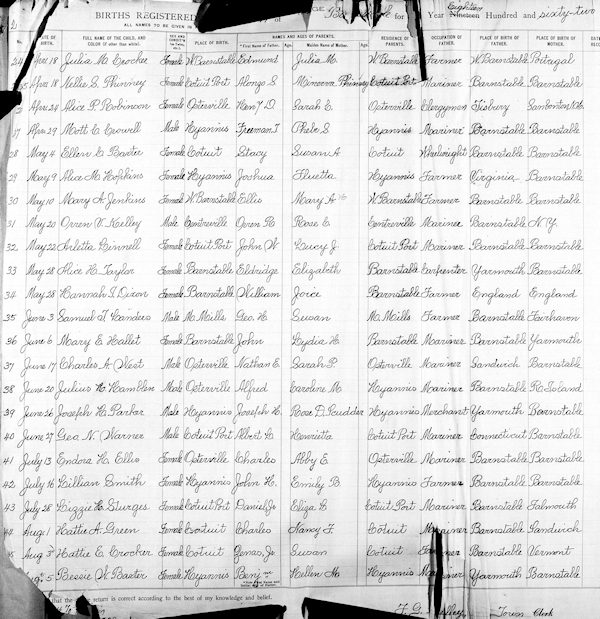 BIRTHS REGISTERED
for Year Nineteen Hundred and sixty-two
Eighteen
ALL NAMES TO BE GIVEN IN
DATE OF BIRTH. FULL NAME OF THE CHILD, AND COLOR (if other than white). PLACE OF BIRTH. NAMES AND AGES OF PARENTS. RESIDENCE OF PARENTS. OCCUPATION OF FATHER. PLACE OF BIRTH OF FATHER. PLACE OF BIRTH OF MOTHER.
*First Name of Father. Age. Maiden Name of Mother. Age.
24 April 18 Julia M. Crocker Female W Barnstable Edmund Julia M. W Barnstable Farmer W Barnstable Portugal
April 18 Nellie S. Phinney Female Cotuit Port Alonzo S Minerva Phinney Cotuit Port Mariner Barnstable Barnstable
April 24 Alice P. Robinson Female Osterville Henry D. Sarah E. Osterville Clergyman Tisbury
27 April 29 Mott C. Crowell Male Hyannis Freeman T Phebe S. Hyannis Mariner Barnstable Barnstable
28 May 4 Ellen C. Baxter Female Cotuit Stacy Susan A Cotuit Wheelwright Barnstable Barnstable
29 May 9 Alice M. Hopkins Female Hyannis Joshua Hyannis Farmer Virginia Barnstable
30 May 10 Mary A. Jenkins Female W. Barnstable Ellis Mary A W Barnstable Farmer Barnstable Barnstable
31 May 20 Orren V. Kelley Male Centreville Oren H. Rose E. Centreville Mariner Barnstable N.Y.
32 May 22 Arletta Ginnell Female Cotuit Port John W Lucy J. Cotuit Port Mariner Barnstable Barnstable
33 May 28 Alice H. Taylor Female Barnstable Eldridge Elizabeth Barnstable Carpenter Yarmouth Barnstable
34 May 28 Hannah J. Dixon Female Barnstable William Joice Barnstable Farmer England England
35 June 3 Samuel T. Landers Male M. Mills Geo. H. Susan M. Mills Farmer Barnstable Fairhaven
36 June 6 Mary E. Hallet Female Barnstable John Lydia H. Barnstable Mariner Barnstable Yarmouth
37 June 17 Charles A. West Male Osterville Nathan E. Sarah P. Osterville Mariner Sandwich Barnstable
38 June 20 Julius H. Hamblen Male Osterville Alfred Caroline M Hyannis Mariner Barnstable R. Island
39 June 26 Joseph H. Parker Male Hyannis Joseph H. Rose D. Scudder Hyannis Merchant Yarmouth Barnstable
40 June 27 Geo. N. Warner Male Cotuit Port Albert G. Henrietta Cotuit Port Mariner Connecticut Barnstable
41 July 13 Endora H. Ellis Female Osterville Charles Abby E. Osterville Mariner Barnstable Barnstable
42 July 16 Lillian Smith Female Hyannis John H. Emily B Hyannis Farmer Barnstable Barnstable
43 July 28 Lizzie H. Sturges Female Cotuit Port Daniel Jr Eliza G Cotuit Port Mariner Barnstable Falmouth
44 Aug 1 Hattie A. Green Female Cotuit Charles Nancy F. Cotuit Mariner Barnstable Sandwich
Aug 3 Hattie E. Crocker Female Cotuit Zenas, Jr. Susan Cotuit Farmer Barnstable Vermont
Aug. 5 Bessie W. Baxter Female Hyannis Benj Hellen M. Hyannis Mariner Yarmouth Barnstable
return is correct according to the best of my knowledge and belief.
Town Clerk